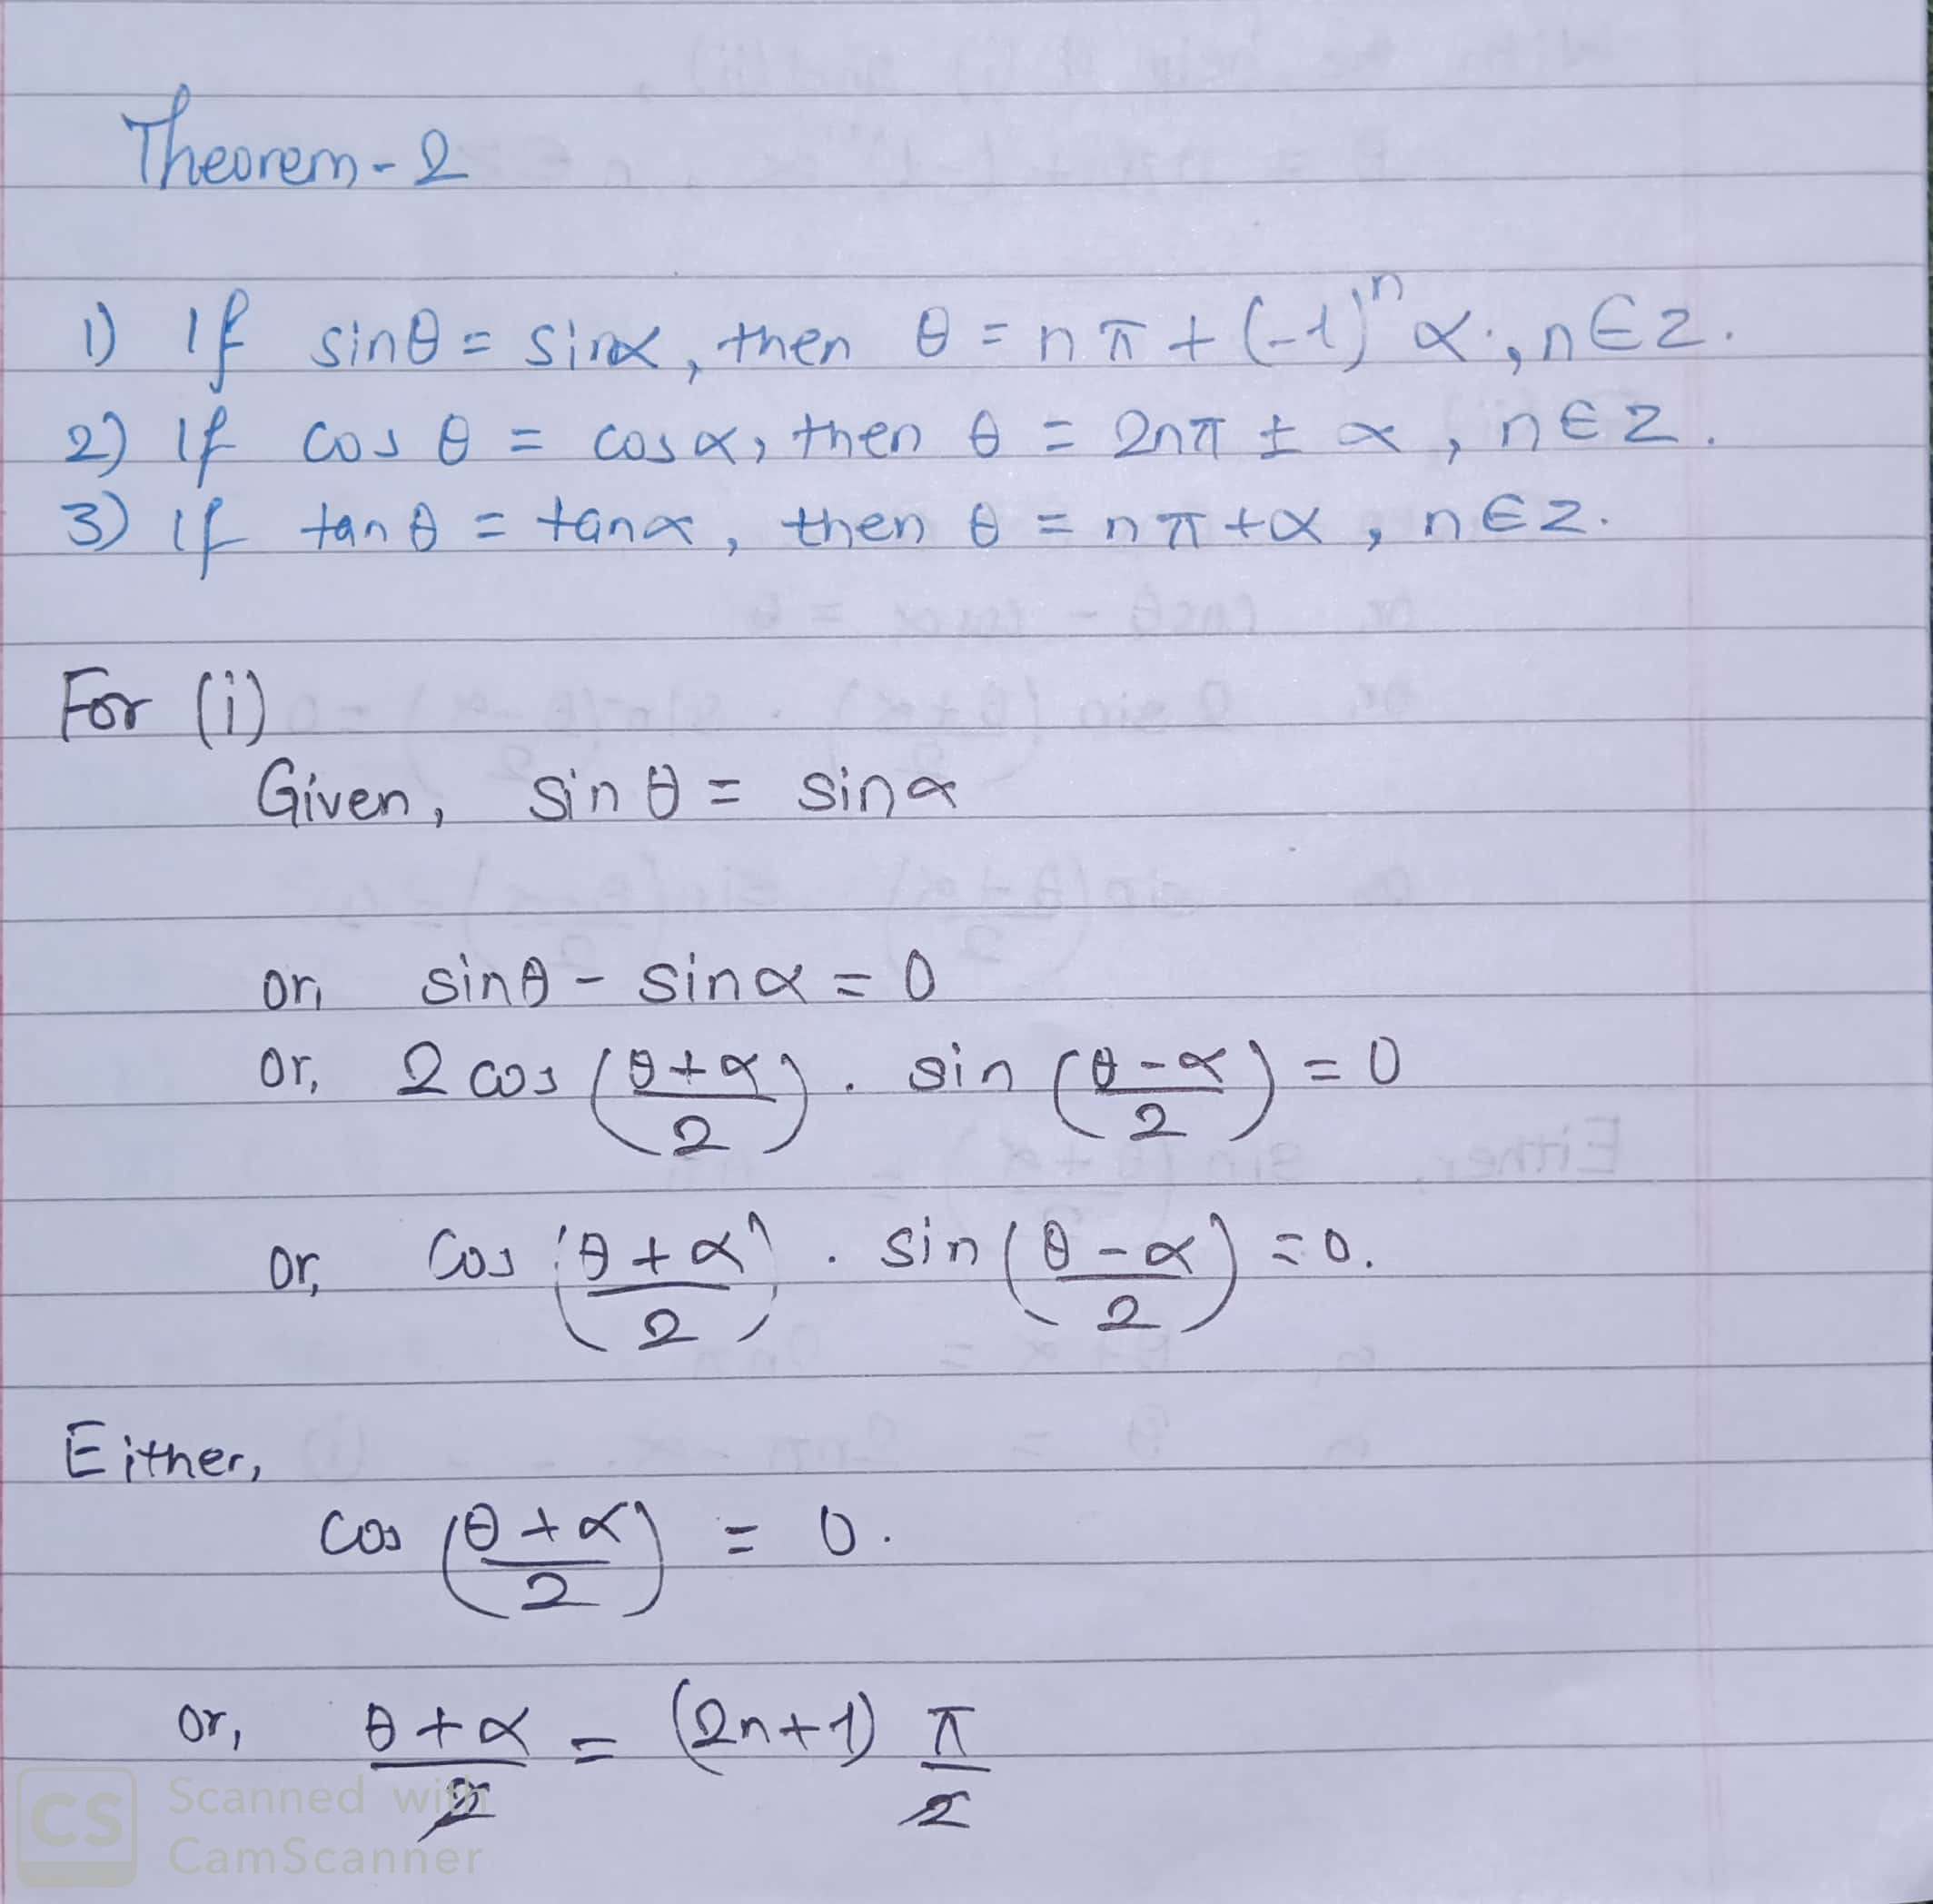 Theorem - 2
1) If sinθ = sinα, then θ = nπ + (-1)ⁿ α, n ∈ Z.
2) If cos θ = cos α, then θ = 2nπ ± α, n ∈ Z.
3) If tan θ = tanα, then θ = nπ + α, n ∈ Z.
For (i)
Given, sin θ = sin α
or, sinθ - sinα = 0
or, 2 cos ((θ+α)/2) . sin ((θ-α)/2) = 0
or, cos ((θ+α)/2) . sin ((θ-α)/2) = 0.
Either,
cos ((θ+α)/2) = 0.
or, (θ+α)/2 = (2n+1) π/2
CS Scanned with
CamScanner